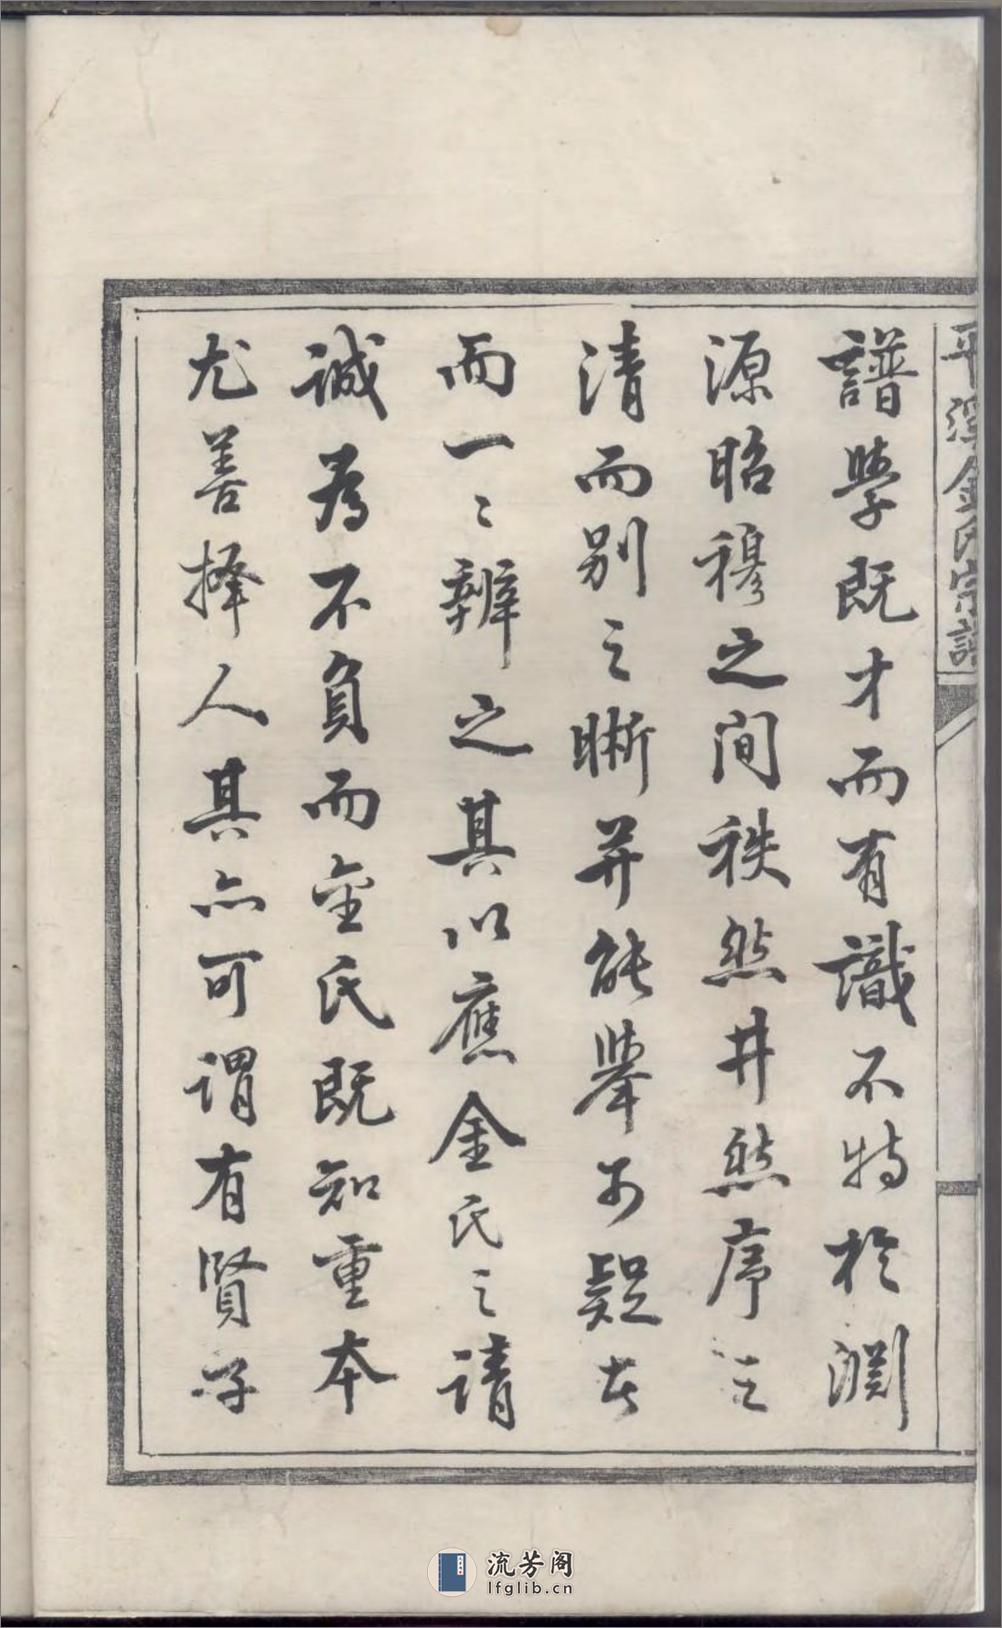 平溪金氏宗譜
譜學既才而有識不特於淵
源昭穆之間秩然井然序之
清而別之晰并能舉可疑者
而一〻辨之其以應金氏之請
誠為不負而金氏既知重本
尤善擇人其亦可謂有賢子
流芳阁
lfglib.cn